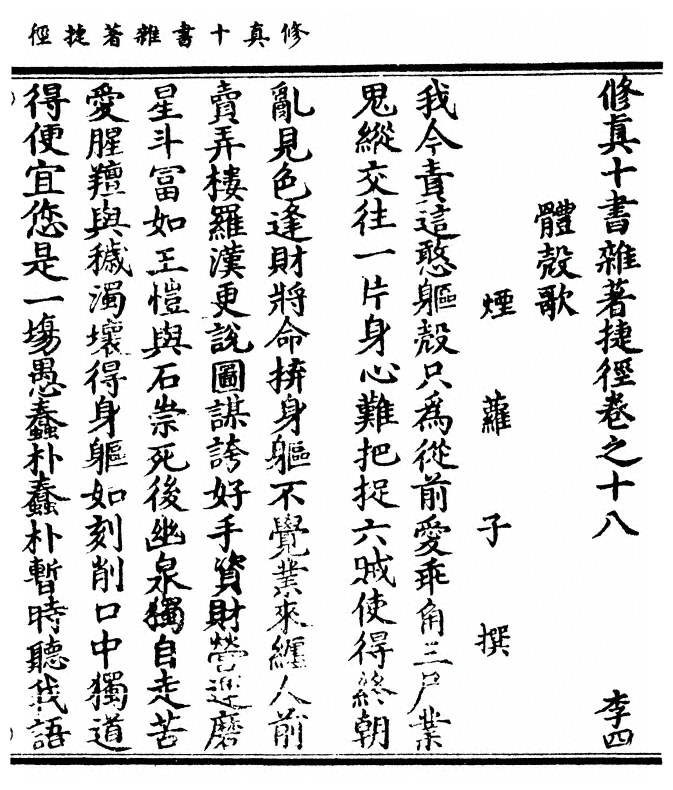 修真十書雜著捷徑
修真十書雜著捷徑卷之十八 李四
體殼歌
煙蘿子撰
我今責這憨軀殼只為從前愛乖角三尸業
鬼縱交往一片身心難把捉六賊使得終朝
亂見色逢財將命拚身軀不覺業來纏人前
賣弄樓羅漢更說圖謀誇好手資財營運磨
星斗富如王愷與石崇死後幽泉獨自走苦
愛腥羶與穢濁壞得身軀如刻削口中獨道
得便宜您是一塲愚蠢朴蠢朴暫時聽我語